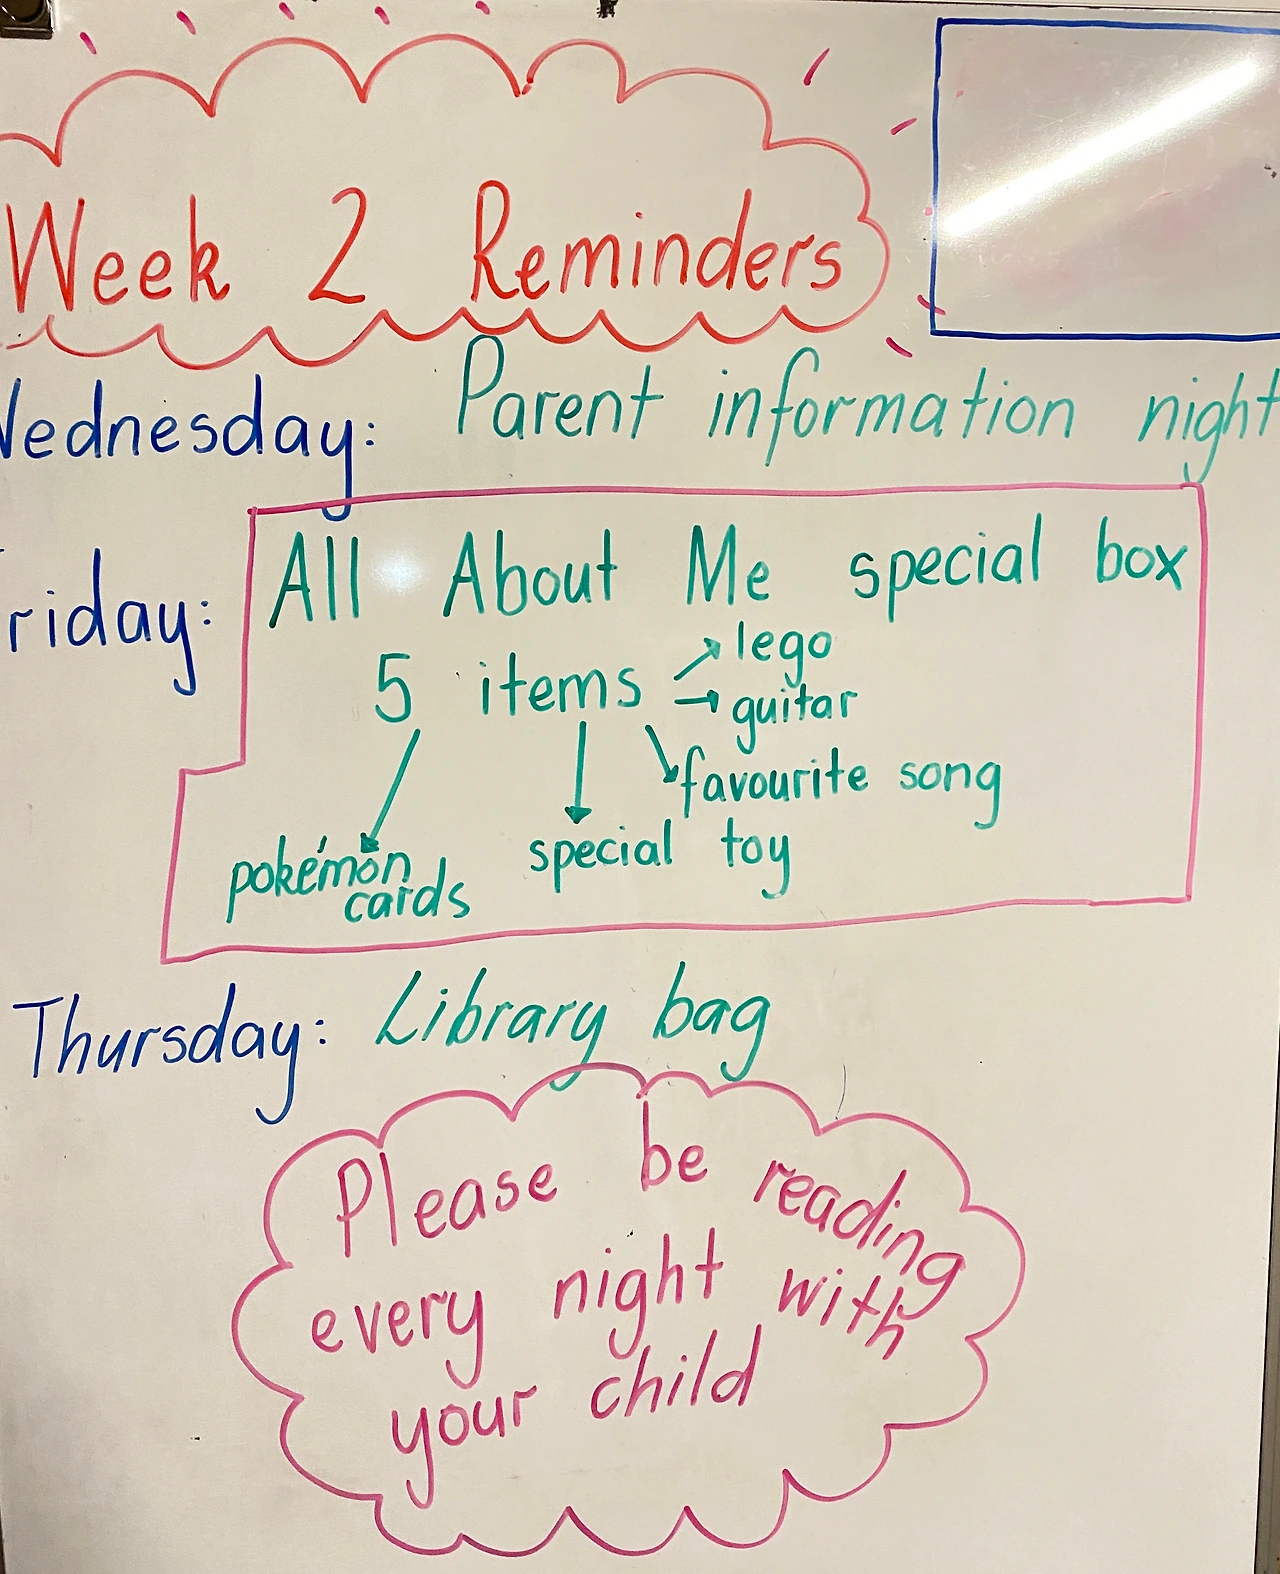 Week 2 Reminders
Wednesday: Parent information night
Friday: All About Me special box
5 items
lego
guitar
favourite song
special toy
pokémon
cards
Thursday: Library bag
Please be reading
every night with
your child